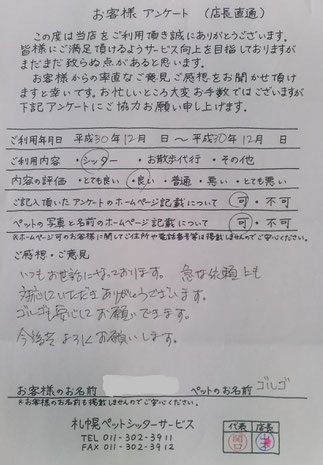 お客様アンケート（店長直通）
この度は当店をご利用頂き誠にありがとうございます。
皆様にご満足頂けるようサービス向上を目指しておりますが
まだまだ致らぬ点があると思います。
お客様からの率直なご意見ご感想をお聞かせ頂け
ますと幸いです。お忙しいところ大変お手数ではございますが
下記アンケートにご協力お願い申し上げます。
ご利用年月日 平成30年12月 日～平成30年12月 日
ご利用内容 ・シッター ・お散歩代行 ・その他
内容の評価 ・とても良い ・良い ・普通 ・悪い ・とても悪い
ご記入頂いたアンケートのホームページ記載について 可・不可
ペットの写真と名前のホームページ記載について 可・不可
*ホームページ可のお客様に関してご住所や電話番号等は掲載しませんのでご安心ください。
ご感想・ご意見
いつもお世話になっております。 急な依頼上も
対応いただきありがとうございます。
ゴルゴも安心してお願いできます。
今後もよろしくお願いします。
お客様のお名前 ペットのお名前 ゴルゴ
*お客様のお名前も掲載しませんのでご安心ください。
札幌ペットシッターサービス
TEL 011-302-3911
FAX 011-302-3912
代表 店長